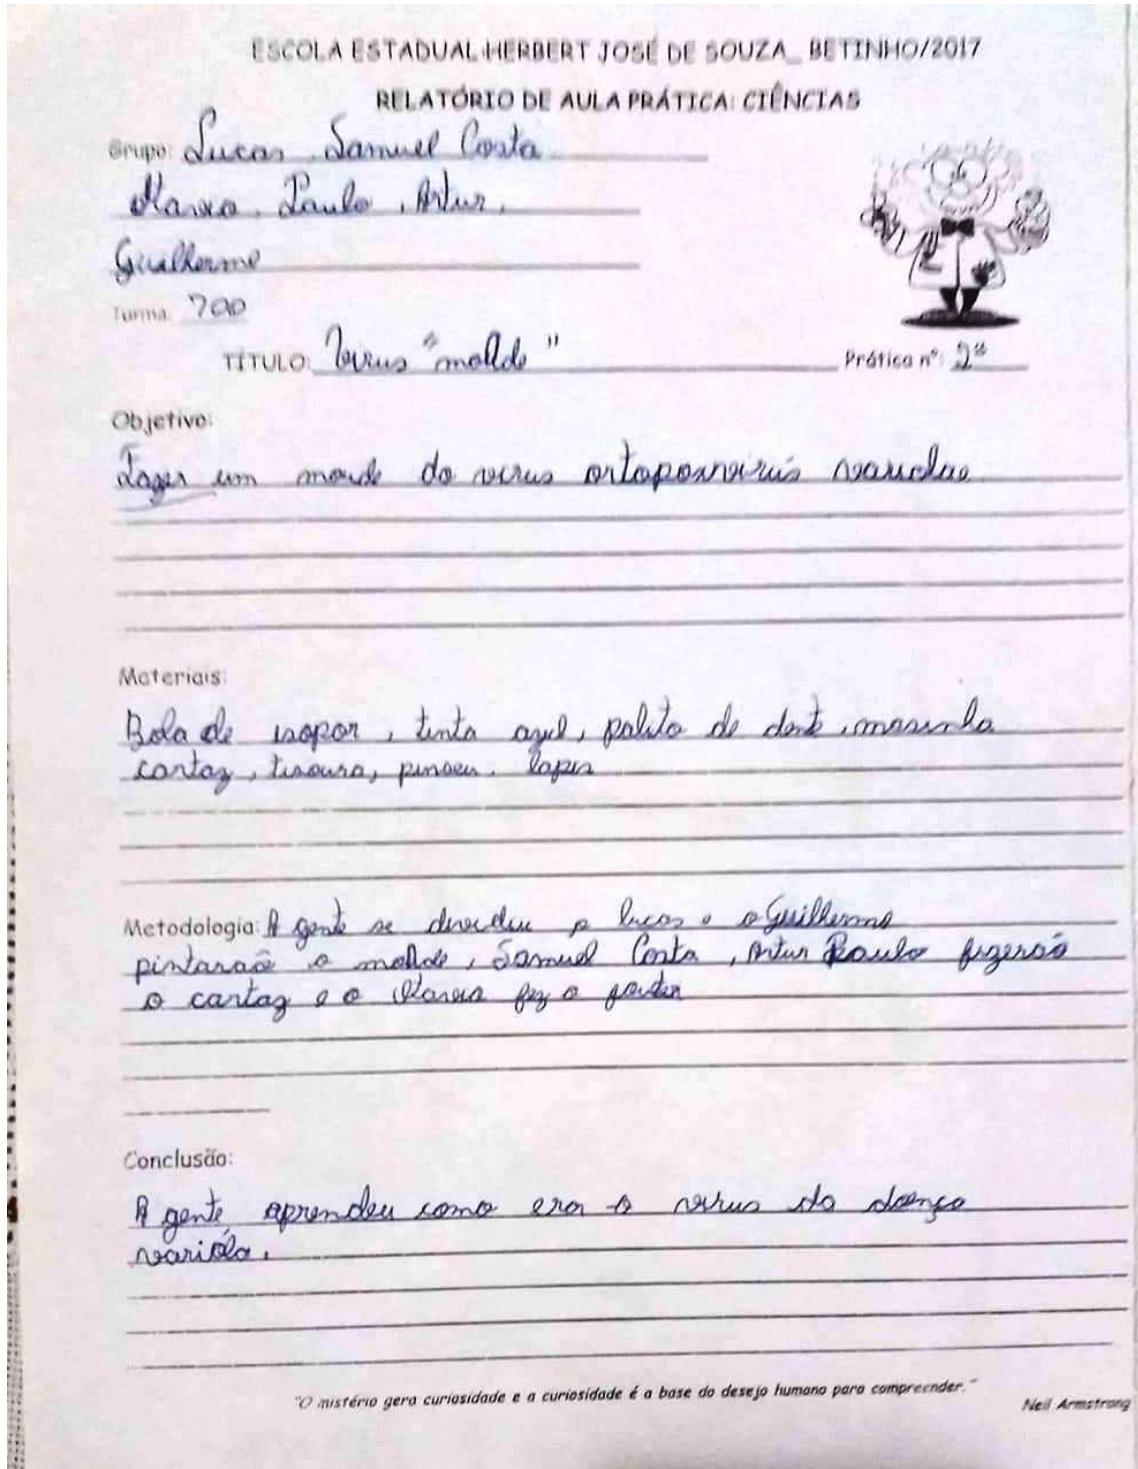 ESCOLA ESTADUAL HERBERT JOSÉ DE SOUZA_ BETINHO/2017
RELATÓRIO DE AULA PRÁTICA: CIÊNCIAS
Grupo: Lucas, Samuel Costa
Paulo, Artur,
Guilherme
Turma: 700
TÍTULO: Virus "molde"
Prática nº: 2ª
Objetivo:
Fazer um molde do virus
Materiais:
Bola de isopor, tinta azul, palito de dente, massinha
cartaz, tisoura, pinseu. lapis
Metodologia: A gente se dividiu o lucas e o Guilherme
pintarão o molde, Samuel Costa, Artur Paulo fizerão
o cartaz e o fez o
Conclusão:
A gente aprendeu como era o virus da doença
varíola.
"O mistério gera curiosidade e a curiosidade é a base do desejo humano para compreender."
Neil Armstrong